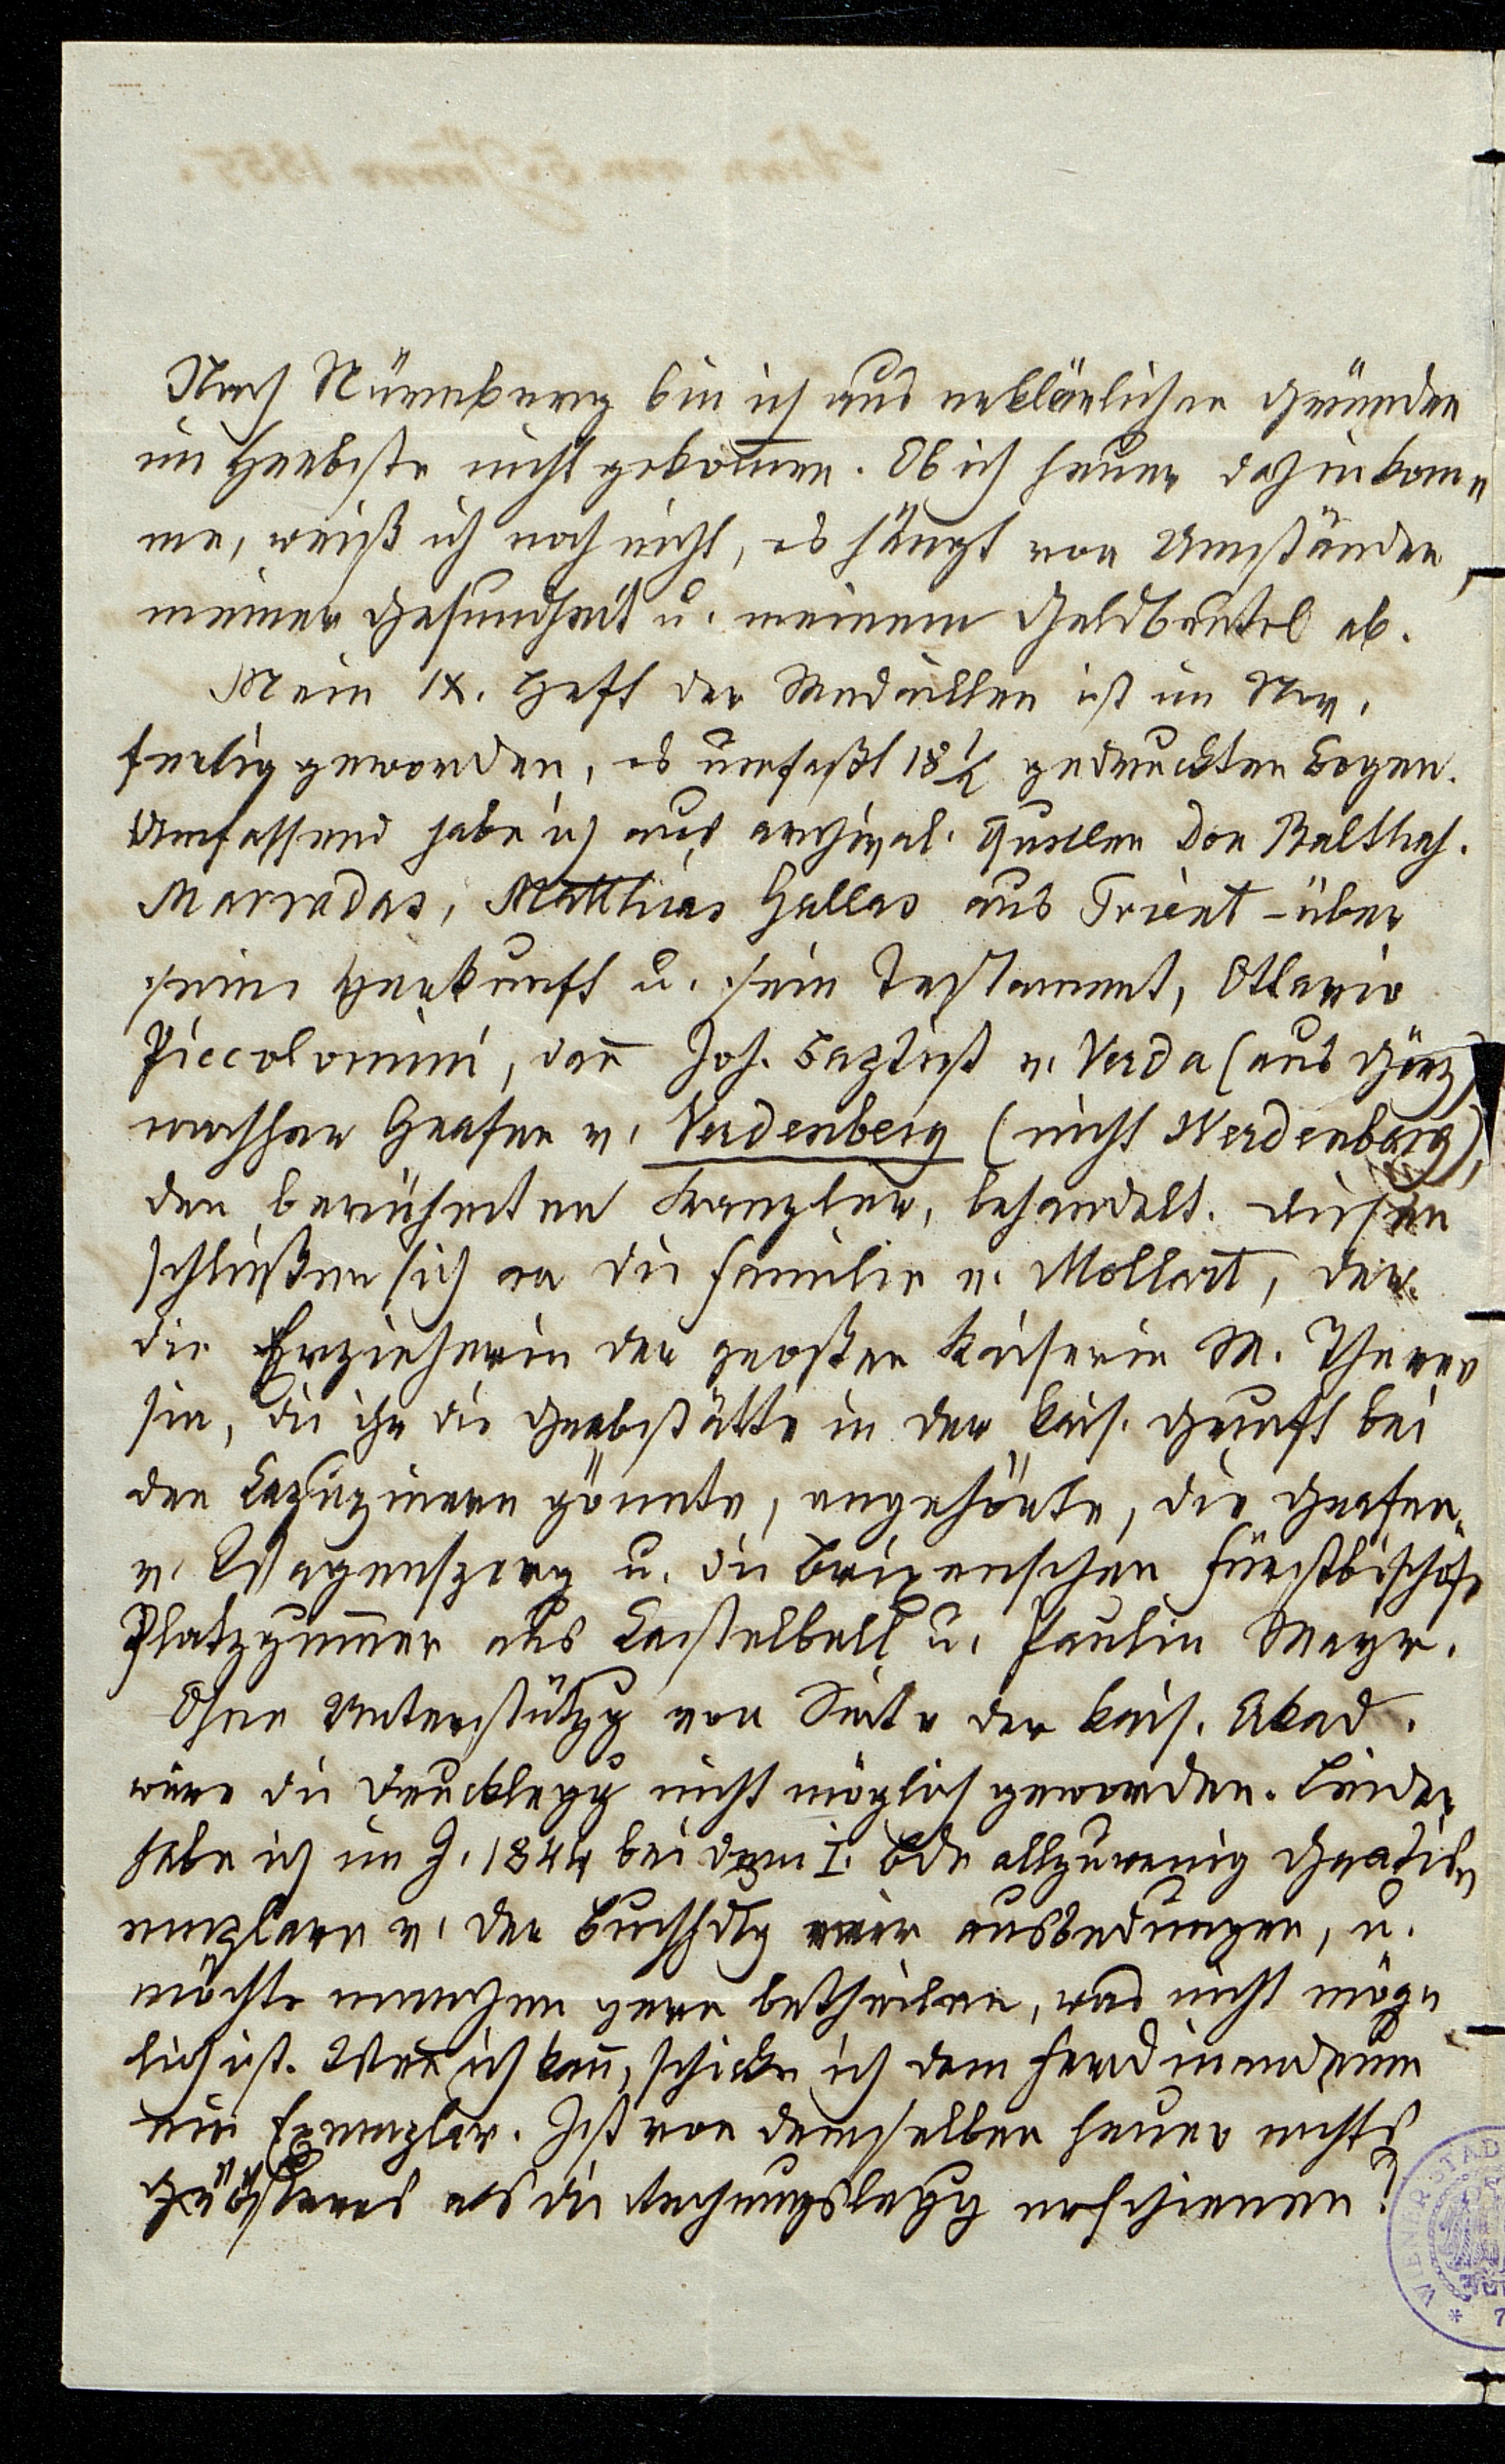 Nach Nürnberg bin ich aus erklärlichen Gründen
im Herbste nicht gekom̅en. Ob ich heuer dahin kom-
me, weiß ich noch nicht, es hängt von Umständen,
meiner Gesundheit u. meinem Geldbeutel ab.
Mein IX. Heft der Medaillen ist im Nov.
fertig geworden, es umfaßt 18 1/2 gedruckten Bogen.
Umfassend habe ich aus archival. Quellen Don Balthas.
Marradas, Matthias Gallas aus Trient – über
seine Herkunft u. sein Testament, Ottavio
Piccolomini, dan̅ Joh. Baptist v. Verda (aus Görz)
nachher Grafen v. Verdenberg (nicht Werdenberg),
den berühmten Kanzler, behandelt. Diesen
schließen sich an die Familie v. Mollart, der
die Erzieherin der großen Kaiserin M. There-
sia, die ihr die Grabstätte in der kais. Gruft bei
den Kapuzinern gönnte, angehörte, die Grafen
v. Wagensperg u. die Brixenschen Fürstbischöfe
Platzgum̅er aus Kastelbell u. Paulin Mayr.
Ohne Unterstützg von Seite der kais. Akad.
wäre die Drucklegg nicht möglich geworden. Leider
habe ich im J. 1844 bei dem I. Bde allzuwenig Gratisex-
emplare v. der Buchhdlg mir ausbedungen, u.
möchte manchen gern betheilen, was nicht mög-
lich ist. Wen̅ ich kan̅, schicke ich dem Ferdinandeum
ein Exemplar. Ist von demselben heuer nichts
als die Rechnungslegg erschienen?
WIENER STAD
* 7